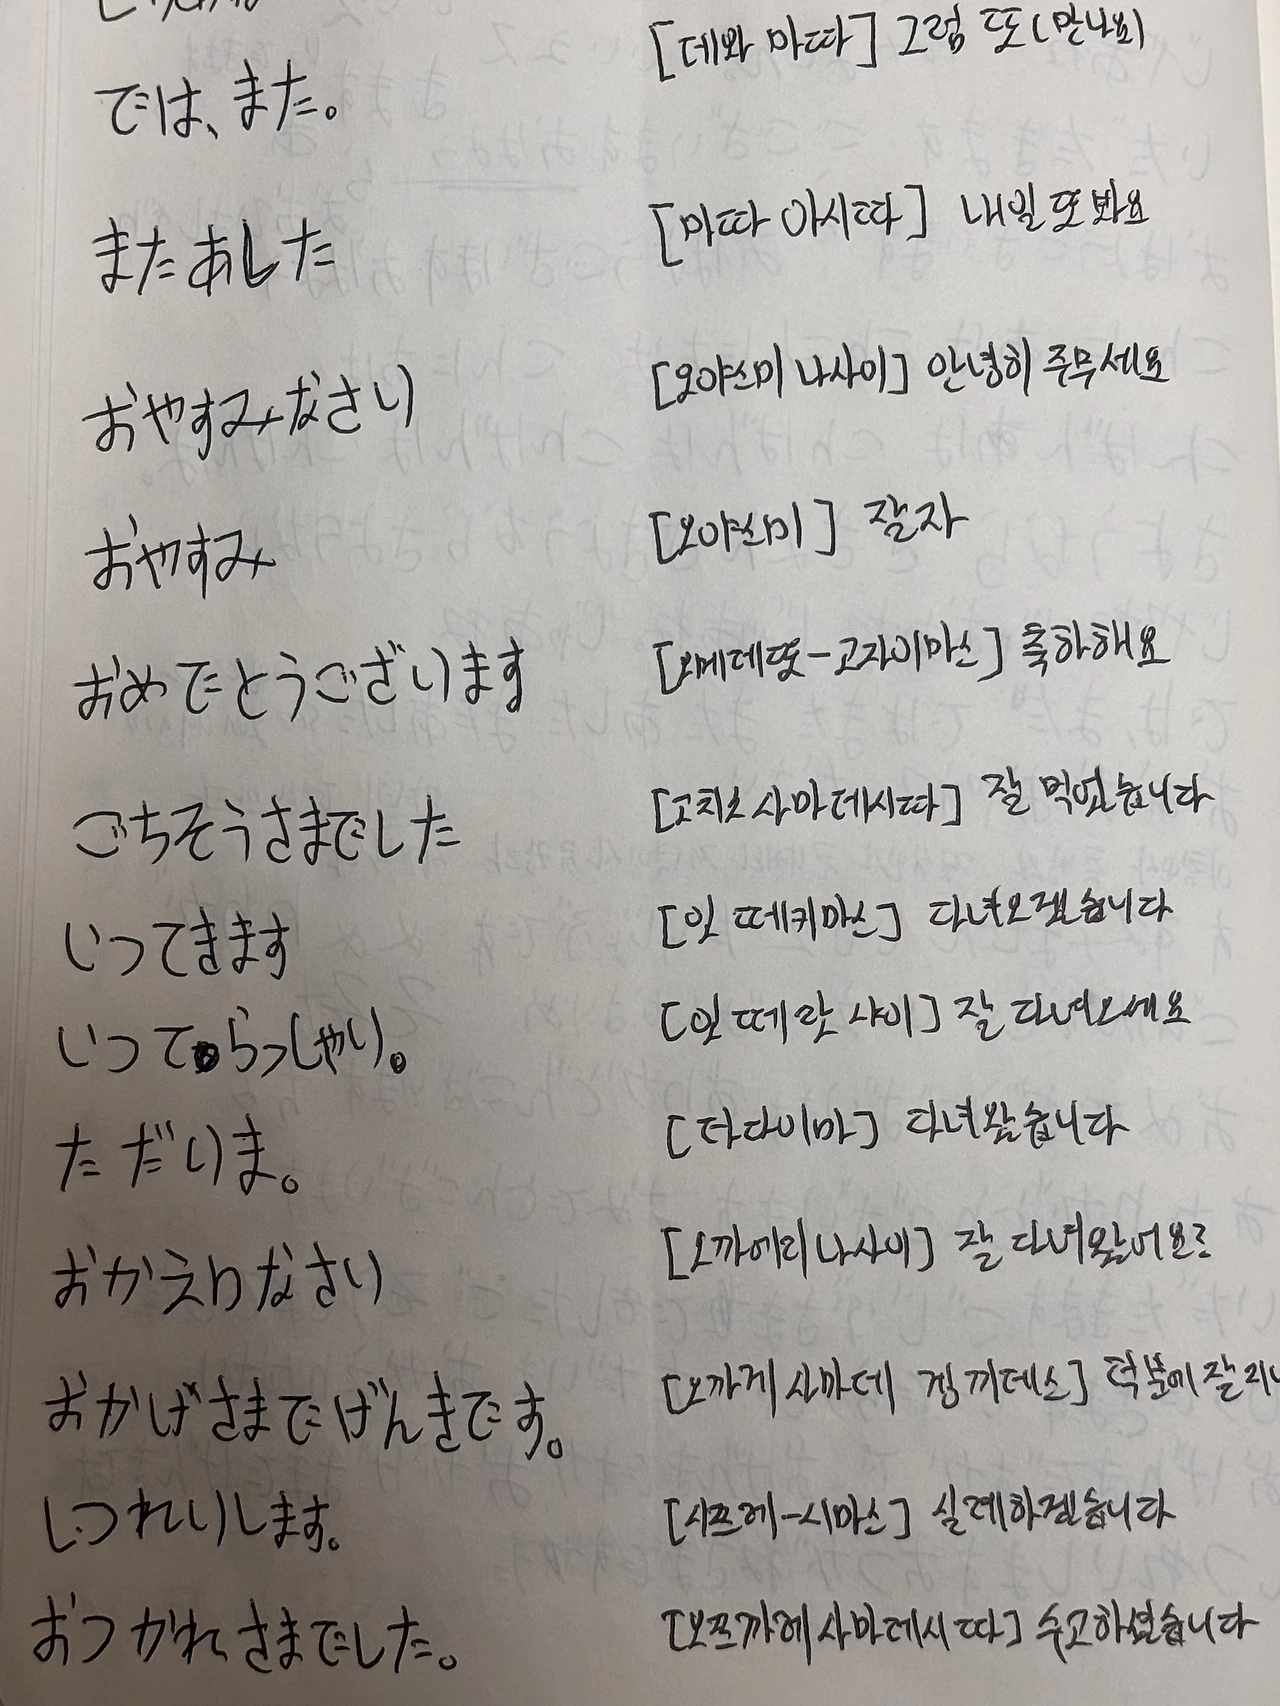 では、また。 [데와 마따] 그럼 또(만나요)
またあした [마따 아시따] 내일 또 봐요
おやすみなさい [오야스미 나사이] 안녕히 주무세요
おやすみ [오야스미] 잘자
おめでとうございます [오메데또-고자이마스] 축하해요
ごちそうさまでした [고치소 사마데시따] 잘 먹었습니다
いってきます [잇 떼키마스] 다녀오겠습니다
いってらっしゃい。 [잇 떼 랏 샤이] 잘 다녀오세요
ただいま。 [타다이마] 다녀왔습니다
おかえりなさい [오까에리나사이] 잘 다녀왔어요?
おかげさまでげんきです。 [오까게 사마데 겡끼데스] 덕분에 잘
しつれいします。 [시쯔레-시마스] 실례하겠습니다
おつかれさまでした。 [오쯔까레 사마데시따] 수고하셨습니다